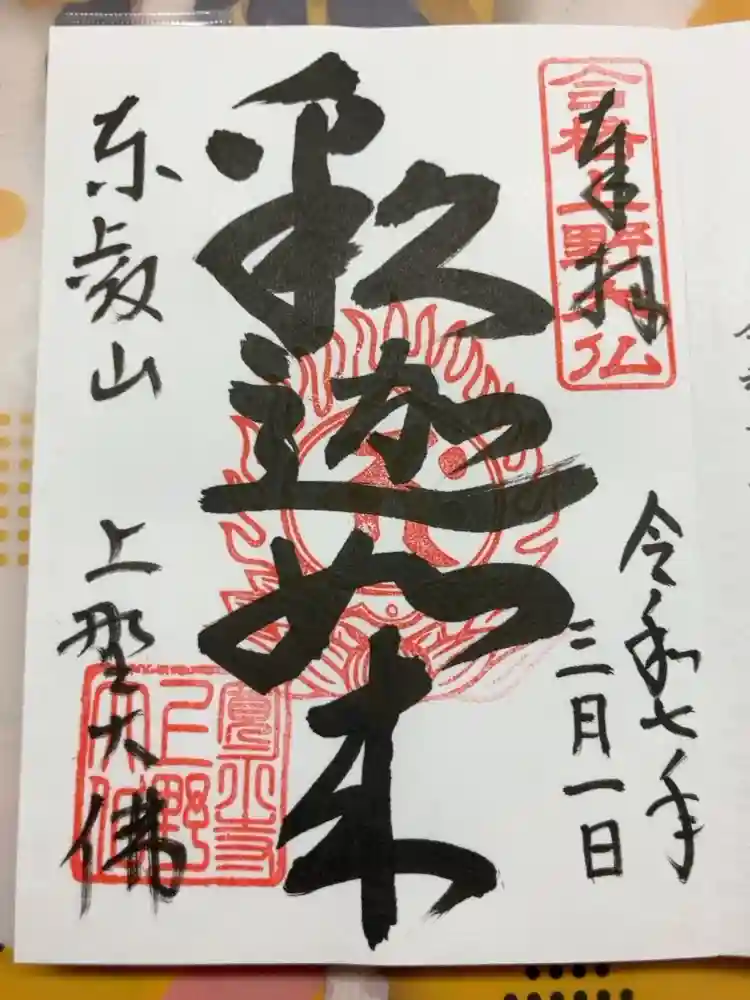 合格上野大仏
奉拝
令和七年
三月一日
釈迦如来
東叡山
上野大佛
寛永寺
上野
大佛